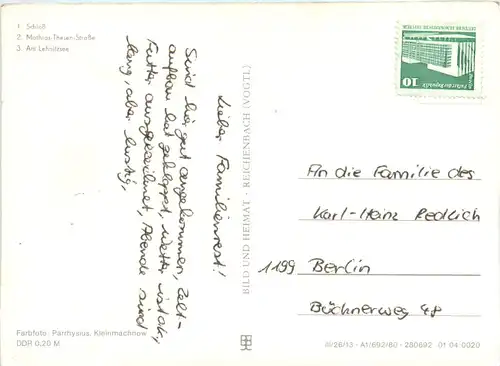 1. Schloß
2. Mathias-Thesen-Straße
3. Am Lehnitzsee
Lieber Familienrest!
Sind hier gut angekommen, Zelt-
aufbau hat geklappt, Wetter ist ok,
Futter ausgezeichnet, Abende sind
lang, aber lustig,
BILD UND HEIMAT · REICHENBACH (VOGTL)
10
An die Familie des
Karl-Heinz Redlich
1199 Berlin
Büchnerweg 48
Farbfoto: Parrhysius, Kleinmachnow
DDR 0,20 M
III/26/13 · A1/692/80 · 280692 01 04 0020